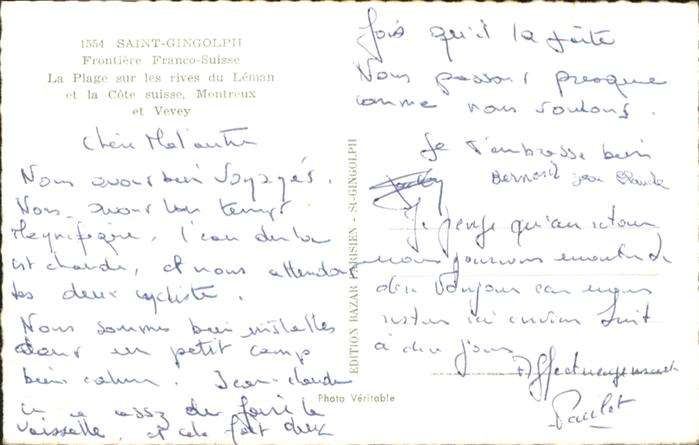 1554 SAINT-GINGOLPH
Frontière Franco-Suisse
La Plage sur les rives du Léman
et la Côte suisse, Montreux
et Vevey
Chère
Nous avons bien Voyagés.
Nous avons bon temps
Magnifique, l'eau du
est chaude, et nous attendons
les deux cycliste.
Nous sommes bien installés
dans un petit camp
bien calme. Jean-claude
en a assez de faire la
vaisselle, et cela fait deux
fois qu'il la faite
Nous passons presque
comme nous voulons.
Je t'embrasse bien
Bernard Jean Claude
Je pense qu'au retour
nous pourrons
dire bonjour car nous
restons ici environ huit
à dix jours
Affectueusement
Paulet
EDITION BAZAR PARISIEN - St-GINGOLPH
Photo Véritable